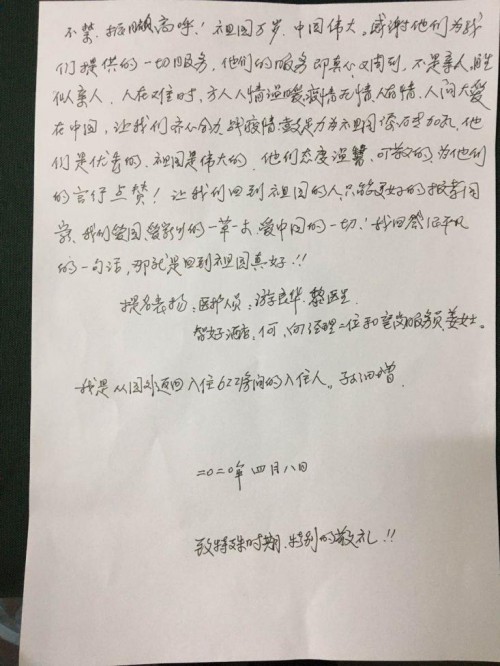 不禁、振臂高呼！祖国万岁、中国伟大。感谢他们为我
们提供的一切服务，他们的服务即真心又周到，不是亲人，胜
似亲人，人在难时，方人人情温暖，疫情无情，人有情，人间大爱
在中国，让我们齐心合力，战疫情，为祖国加油，他
们是优秀的，祖国是伟大的，他们态度温馨，可敬的，为他们
的言行点赞！让我们回到祖国的人，只能更好的报孝国
家，我们爱国，爱家的一草一木，爱中国的一切！我回答后平凡
的一句话，那就是回到祖国真好！！
提名表扬：医护人员：游良华、黎医生
智好酒店，何、向经理二位和宽岗服务员姜女士。
我是从国外返回入住622房间的入住人。增
二〇二〇年四月八日
致特殊时期、特别的敬礼！！